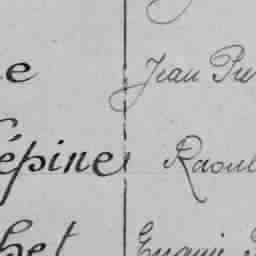 e Jean Pi
épine Raoul
het Eugène